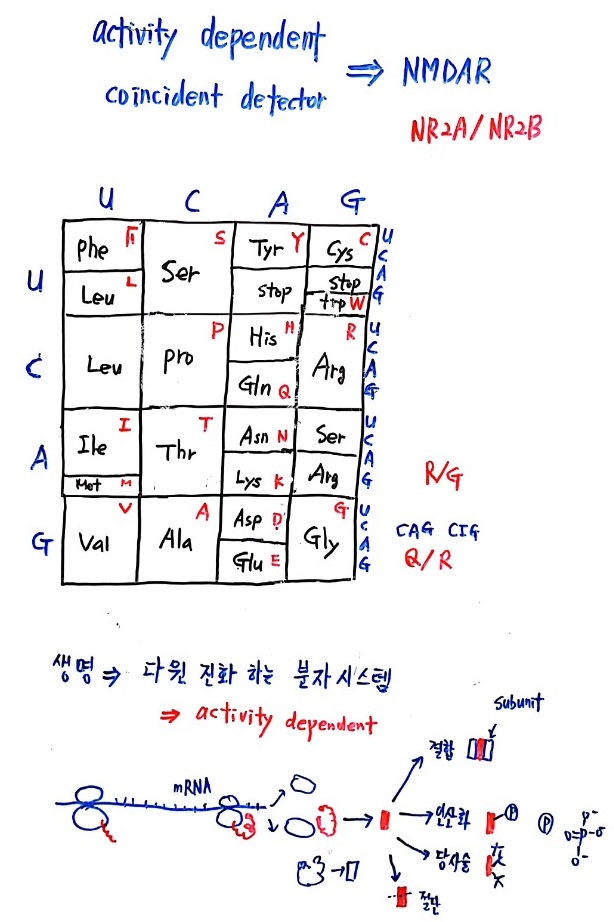 activity dependent
coincident detector
⇒ NMDAR
NR2A / NR2B
U C A G
U
Phe
Leu L
Ser S
Tyr Y
stop
Cys C
stop
trp W
U
C
A
G
C
Leu
Pro P
His H
Gln Q
Arg R
U
C
A
G
A
Ile I
Met M
Thr T
Asn N
Lys K
Ser
Arg
U
C
A
G
R/G
G
Val V
Ala A
Asp D
Glu E
Gly G
U
C
A
G
CAG CIG
Q/R
생명 ⇒ 다윈 진화 하는 분자시스템
⇒ activity dependent
subunit
결합
mRNA
인산화 P
P
P⁻
O=P-O
O⁻
당사슬
절단